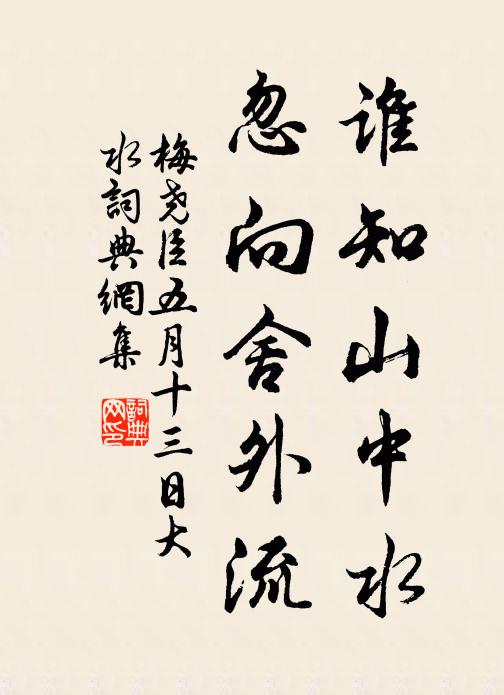 誰知山中水
忽向舍外流
梅堯臣五月十三日大
水詞典網集
詞典
网印